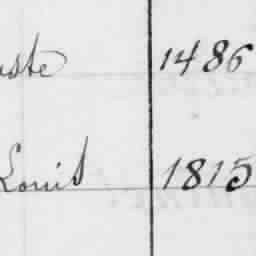 uste 1486
Louis 1815